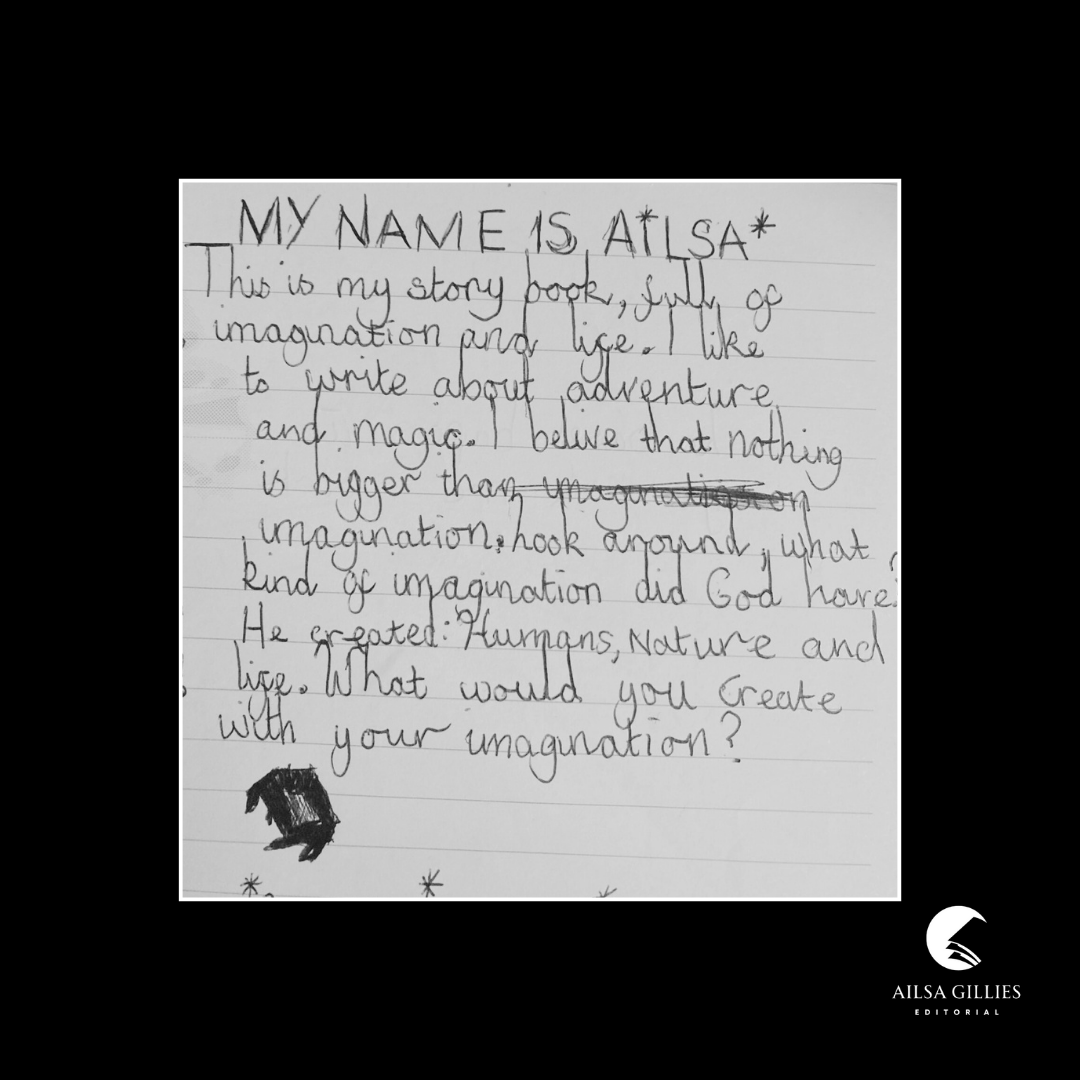 MY NAME IS A*LSA*
This is my story book, full of
imagination and life. I like
to write about adventure
and magic. I belive that nothing
is bigger than imagination
imagination. Look around, what
kind of imagination did God have?
He created: Humans, Nature and
life. What would you Create
with your imagination?
AILSA GILLIES
EDITORIAL